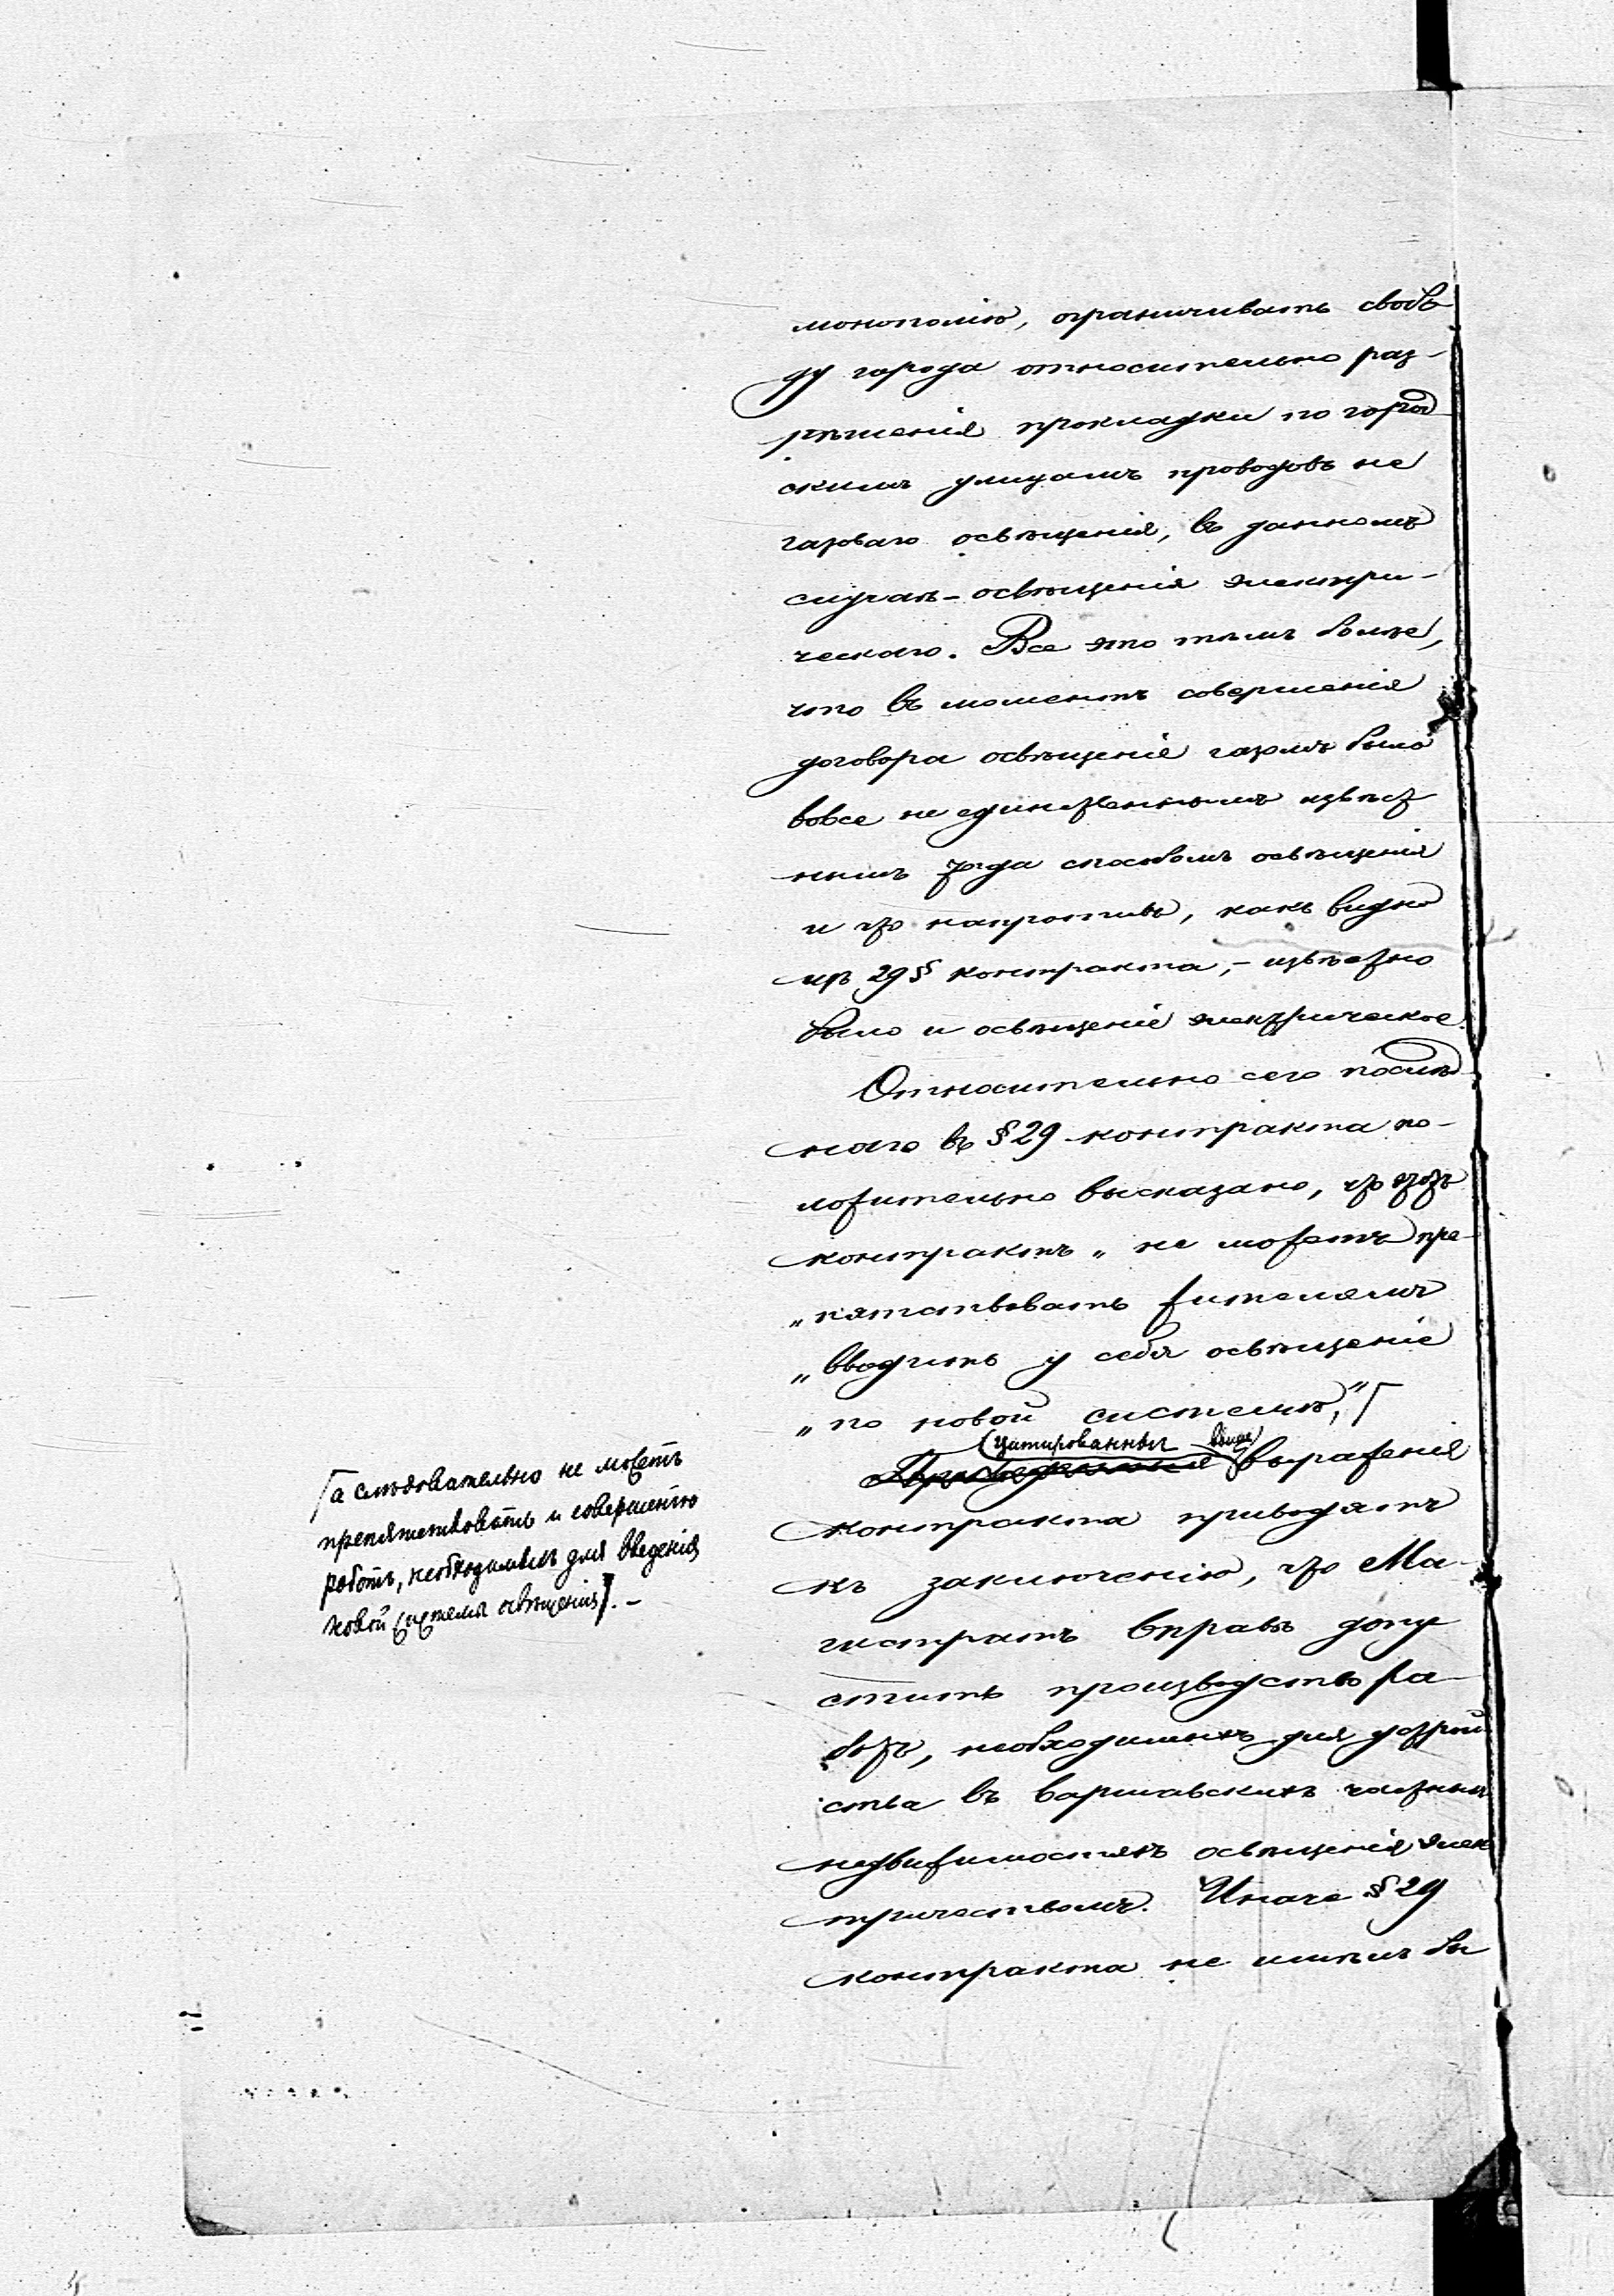 монополію, ограничивать свобо
ду города относительно раз-
рѣшенія прокладки по город
скимъ улицамъ проводовъ не
газоваго освѣщенія, въ данномъ
случаѣ – освѣщенія электри-
ческаго. Все это тѣмъ болѣе,
что въ моментъ совершенія
договора освѣщеніе газомъ было
вовсе не единственнымъ извѣст
нымъ тогда способомъ освѣщенія
и что напротивъ, какъ видно
изъ 29 § контракта, – извѣстно
было и освѣщеніе электрическое.
Относительно сего послѣд
няго въ § 29 контракта по-
ложительно высказано, что этотъ
контрактъ „не можетъ пре-
„пятствовать жителямъ
„вводить у себя освѣщеніе
„по новой системѣ,“ Г
(цитированныя выше)
Приведенныя выраженія
контракта приводятъ
къ заключенію, что Ма-
гистратъ вправѣ допу
стить производство ра-
ботъ, необходимыхъ для устрой
ства въ варшавскихъ частныхъ
недвижимостяхъ освѣщенія элек
тричествомъ. Иначе § 29
контракта не имѣлъ бы
Га слѣдовательно не можетъ
препятствовать и совершенію
работъ, необходимыхъ для введенія
новой системы освѣщенія]. –